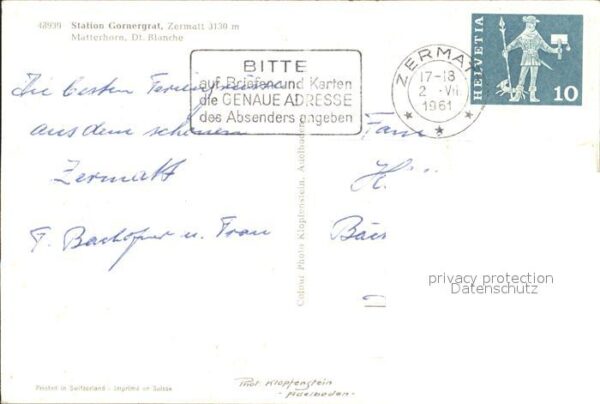 48939 Station Gornergrat, Zermatt 3130 m
Matterhorn, Dt. Blanche
BITTE
auf Briefen und Karten
die GENAUE ADRESSE
des Absenders angeben
ZERMATT
17-18
2. VII
1961
HELVETIA
10
Die besten
aus dem schönen
Zermatt
F. Bachofner u. Frau
Fam
H.
Colour Photo Klopfenstein, Adelboden
privacy protection
Datenschutz
Printed in Switzerland - Imprimé en Suisse
Phot. Klopfenstein
- Adelboden -